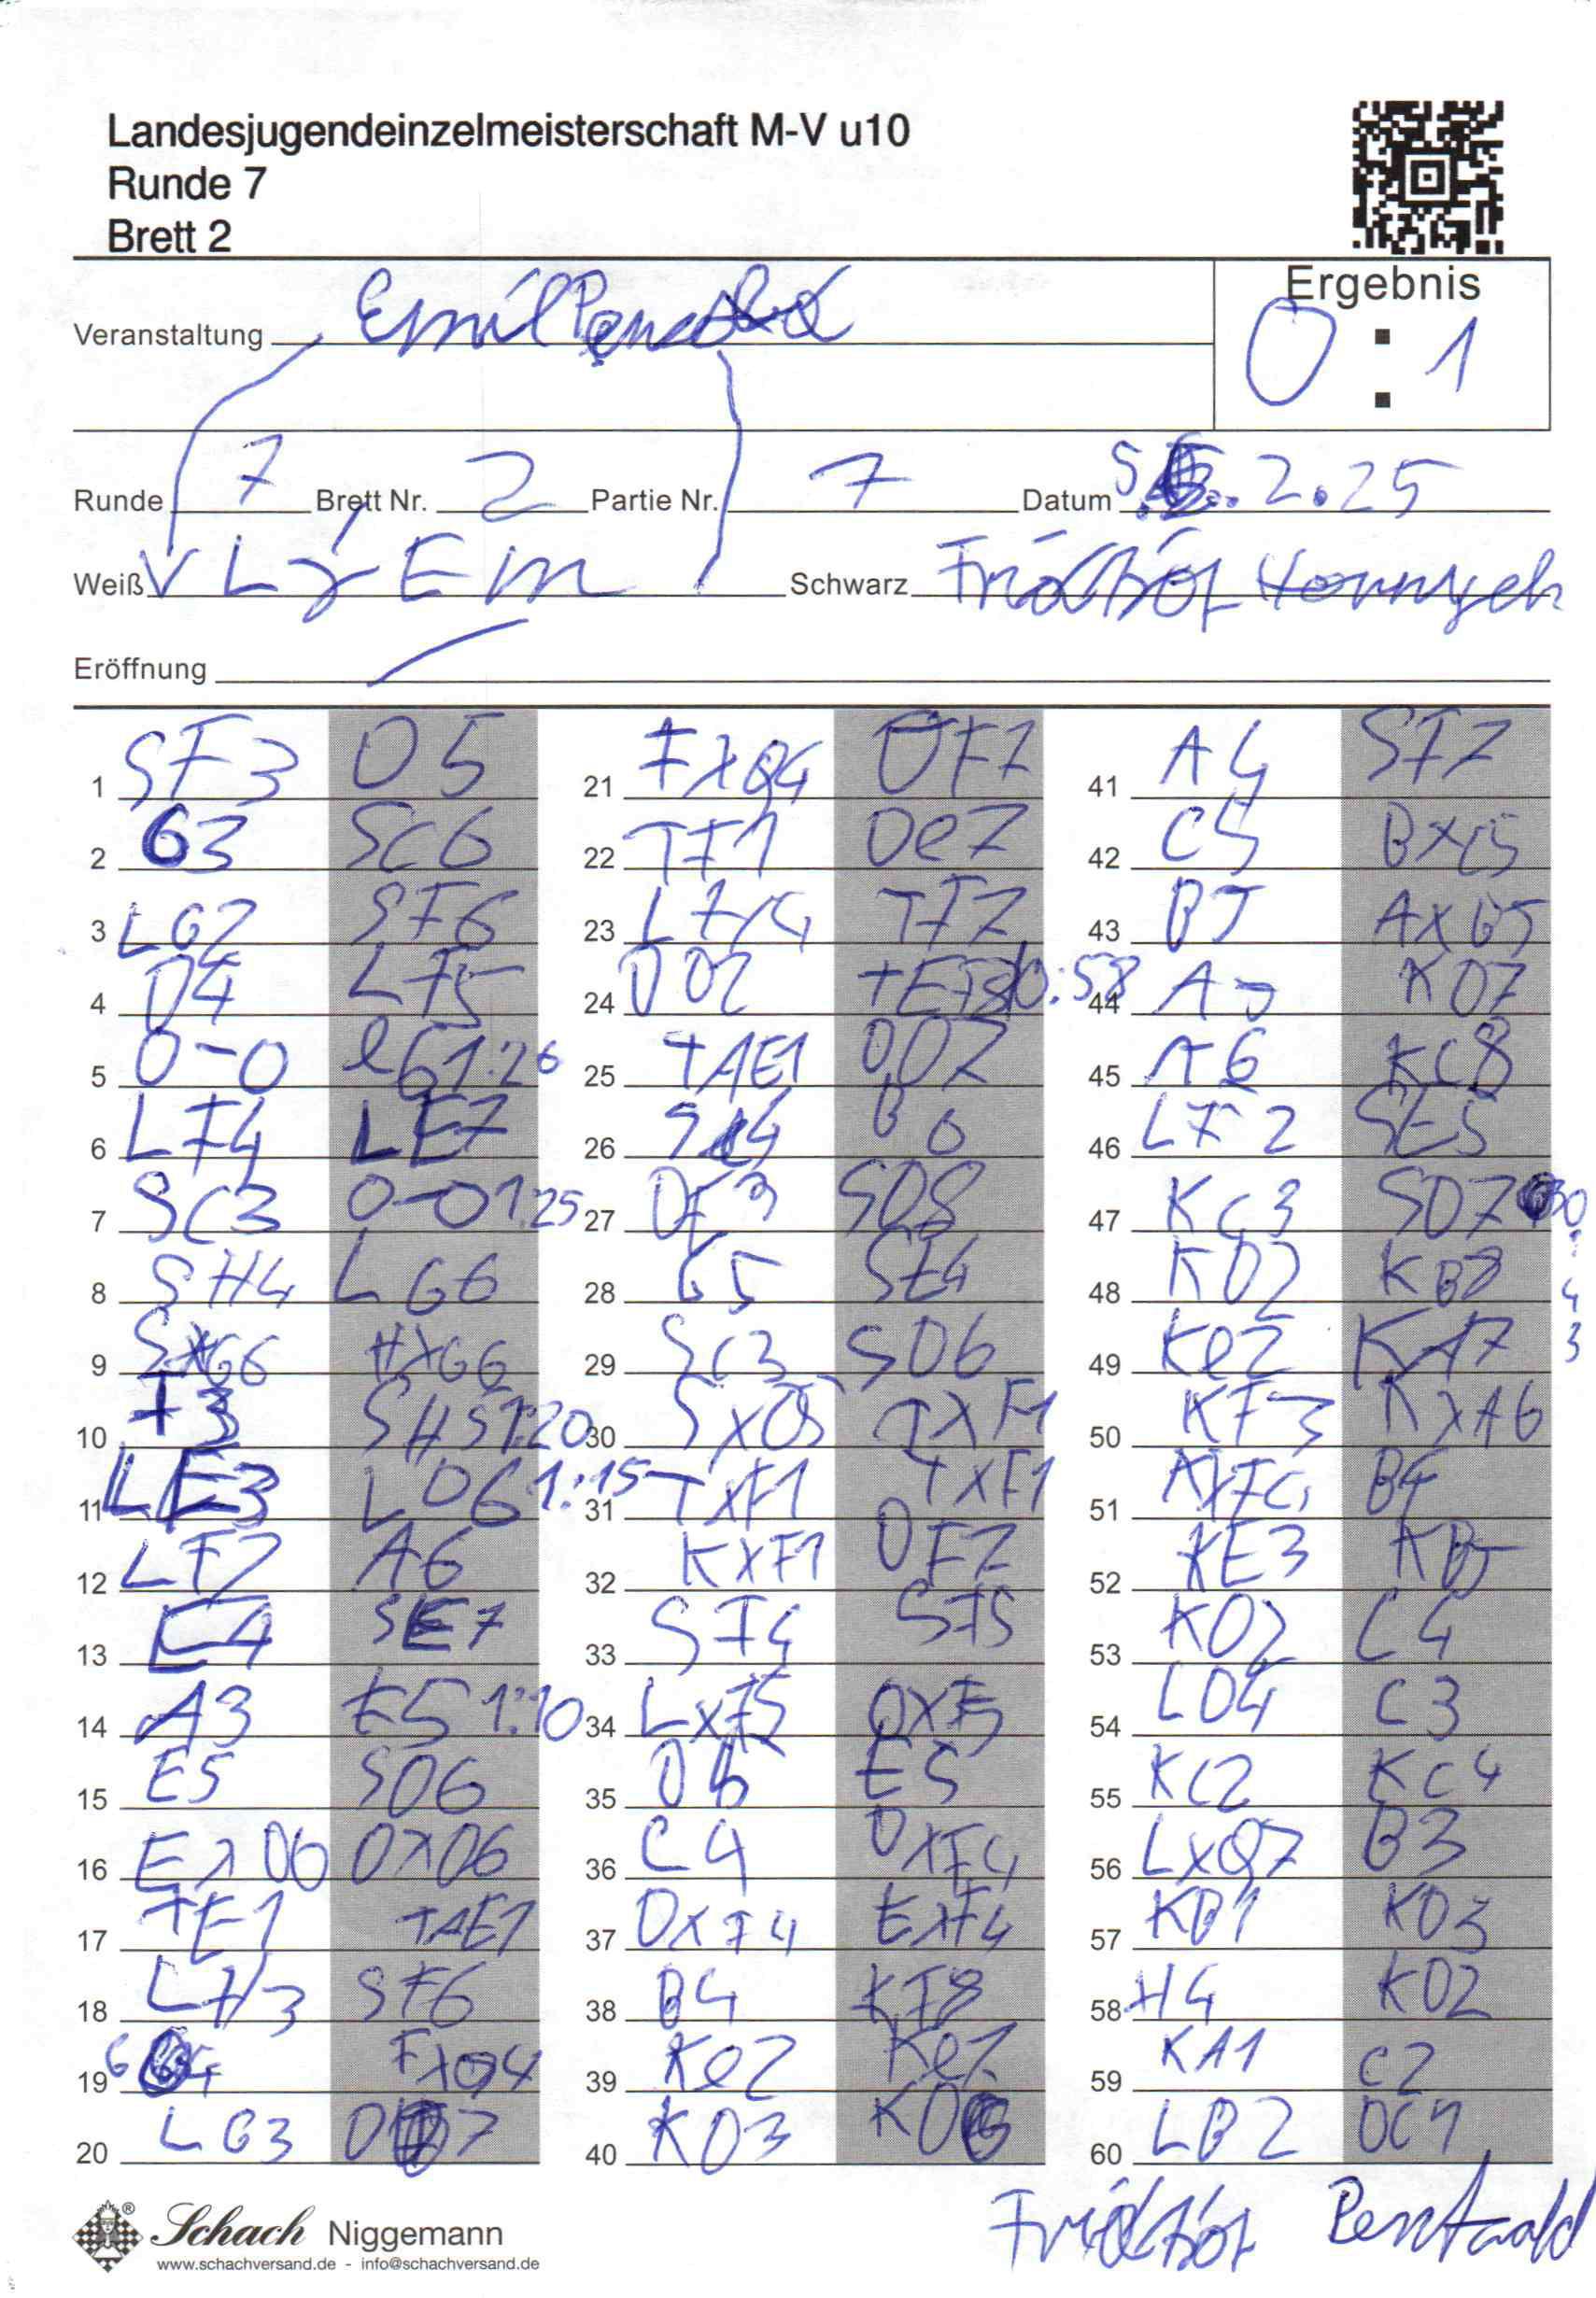 Landesjugendeinzelmeisterschaft M-V u10
Runde 7
Brett 2
Ergebnis
Veranstaltung Emil
0 : 1
Runde 7 Brett Nr. 2 Partie Nr. 7 Datum 5. 2.25
Weiß Schwarz
Eröffnung
1 SF3 D5
2 G3 SC6
3 LG2 SF6
4 D4 LF5
5 0-0 e6 1:26
6 LF4 LE7
7 SC3 0-0 1:25
8 SH4 LG6
9 SXG6 HXG6
10 F3 SH5 1:20
11 LE3 LD6 1:15
12 LF2 A6
13 E4 SE7
14 A3 F5 1:10
15 E5 SD6
16 EXD6 DXD6
17 TE1 TAE1
18 LH3 SF6
19 G4 FXG4
20 LG3 DD7
21 FXG4 DF7
22 TF1 De7
23 LF4 TF7
24 DD2 TEF8 0:58
25 TAE1 DD7
26 Se4 B6
27 DE3 SD8
28 G5 SE4
29 SC3 SD6
30 SXD5 TXF1
31 TXF1 TXF1
32 KXF1 DF7
33 SF4 SF5
34 LXF5 DXF5
35 D6 E5
36 C4 DXF4
37 DXF4 EXF4
38 B4 KF8
39 Ke2 Ke7
40 KD3 KD6
41 A4 SF7
42 C5 BXC5
43 B5 AXB5
44 A5 KD7
45 A6 KC8
46 LF2 SE5
47 KC3 SD7 0:43
48 KD2 KB8
49 Ke2 KA7
50 KF3 KXA6
51 KXF4 B4
52 KE3 KB5
53 KD2 C4
54 LD4 C3
55 KC2 KC4
56 LXG7 B3
57 KB1 KD3
58 H4 KD2
59 KA1 C2
60 LB2 DC1
Schach Niggemann
www.schachversand.de - info@schachversand.de